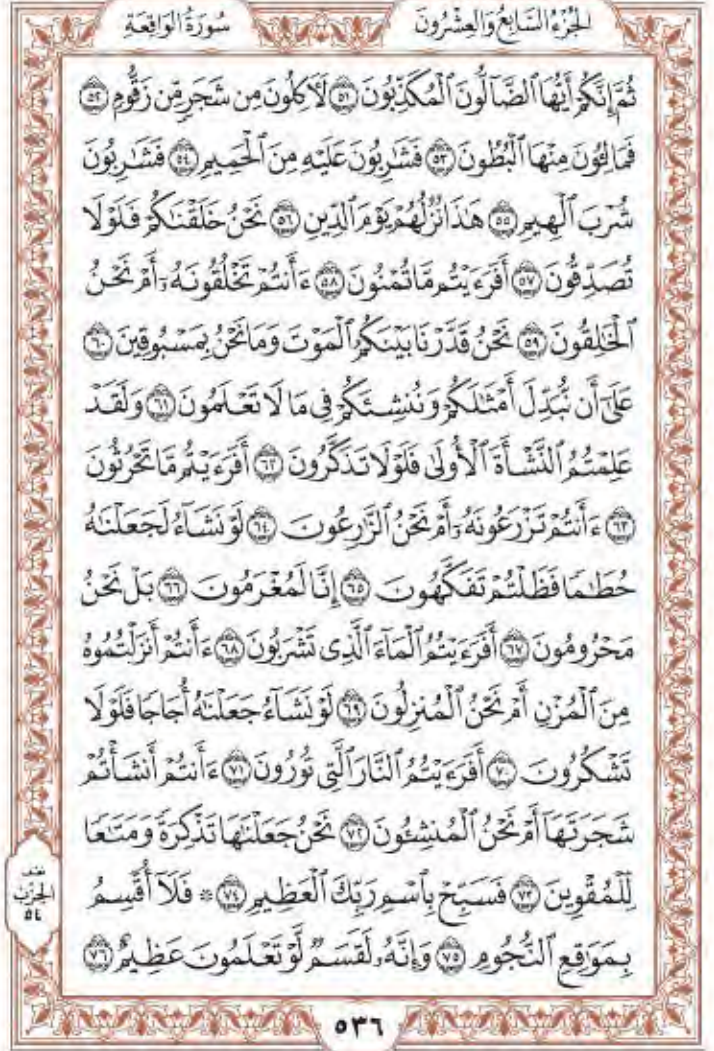 الجُزْءُ السَّابِعُ وَالعِشْرُونَ سُورَةُ الوَاقِعَةِ
ثُمَّ إِنَّكُمْ أَيُّهَا ٱلضَّآلُّونَ ٱلْمُكَذِّبُونَ ٥١ لَأٓكِلُونَ مِن شَجَرٖ مِّن زَقُّومٖ ٥٢
فَمَالِـُٔونَ مِنْهَا ٱلْبُطُونَ ٥٣ فَشَٰرِبُونَ عَلَيْهِ مِنَ ٱلْحَمِيمِ ٥٤ فَشَٰرِبُونَ
شُرْبَ ٱلْهِيمِ ٥٥ هَٰذَا نُزُلُهُمْ يَوْمَ ٱلدِّينِ ٥٦ نَحْنُ خَلَقْنَٰكُمْ فَلَوْلَا
تُصَدِّقُونَ ٥٧ أَفَرَءَيْتُم مَّا تُمْنُونَ ٥٨ ءَأَنتُمْ تَخْلُقُونَهُۥٓ أَمْ نَحْنُ
ٱلْخَٰلِقُونَ ٥٩ نَحْنُ قَدَّرْنَا بَيْنَكُمُ ٱلْمَوْتَ وَمَا نَحْنُ بِمَسْبُوقِينَ ٦٠
عَلَىٰٓ أَن نُّبَدِّلَ أَمْثَٰلَكُمْ وَنُنشِئَكُمْ فِى مَا لَا تَعْلَمُونَ ٦١ وَلَقَدْ
عَلِمْتُمُ ٱلنَّشْأَةَ ٱلْأُولَىٰ فَلَوْلَا تَذَكَّرُونَ ٦٢ أَفَرَءَيْتُم مَّا تَحْرُثُونَ
٦٣ ءَأَنتُمْ تَزْرَعُونَهُۥٓ أَمْ نَحْنُ ٱلزَّٰرِعُونَ ٦٤ لَوْ نَشَآءُ لَجَعَلْنَٰهُ
حُطَٰمٗا فَظَلْتُمْ تَفَكَّهُونَ ٦٥ إِنَّا لَمُغْرَمُونَ ٦٦ بَلْ نَحْنُ
مَحْرُومُونَ ٦٧ أَفَرَءَيْتُمُ ٱلْمَآءَ ٱلَّذِى تَشْرَبُونَ ٦٨ ءَأَنتُمْ أَنزَلْتُمُوهُ
مِنَ ٱلْمُزْنِ أَمْ نَحْنُ ٱلْمُنزِلُونَ ٦٩ لَوْ نَشَآءُ جَعَلْنَٰهُ أُجَاجٗا فَلَوْلَا
تَشْكُرُونَ ٧٠ أَفَرَءَيْتُمُ ٱلنَّارَ ٱلَّتِى تُورُونَ ٧١ ءَأَنتُمْ أَنشَأْتُمْ
شَجَرَتَهَآ أَمْ نَحْنُ ٱلْمُنشِـُٔونَ ٧٢ نَحْنُ جَعَلْنَٰهَا تَذْكِرَةٗ وَمَتَٰعٗا
لِّلْمُقْوِينَ ٧٣ فَسَبِّحْ بِٱسْمِ رَبِّكَ ٱلْعَظِيمِ ٧٤ ۞ فَلَآ أُقْسِمُ
بِمَوَٰقِعِ ٱلنُّجُومِ ٧٥ وَإِنَّهُۥ لَقَسَمٞ لَّوْ تَعْلَمُونَ عَظِيمٌ ٧٦
نصف
الحزب
٥٤
٥٣٦